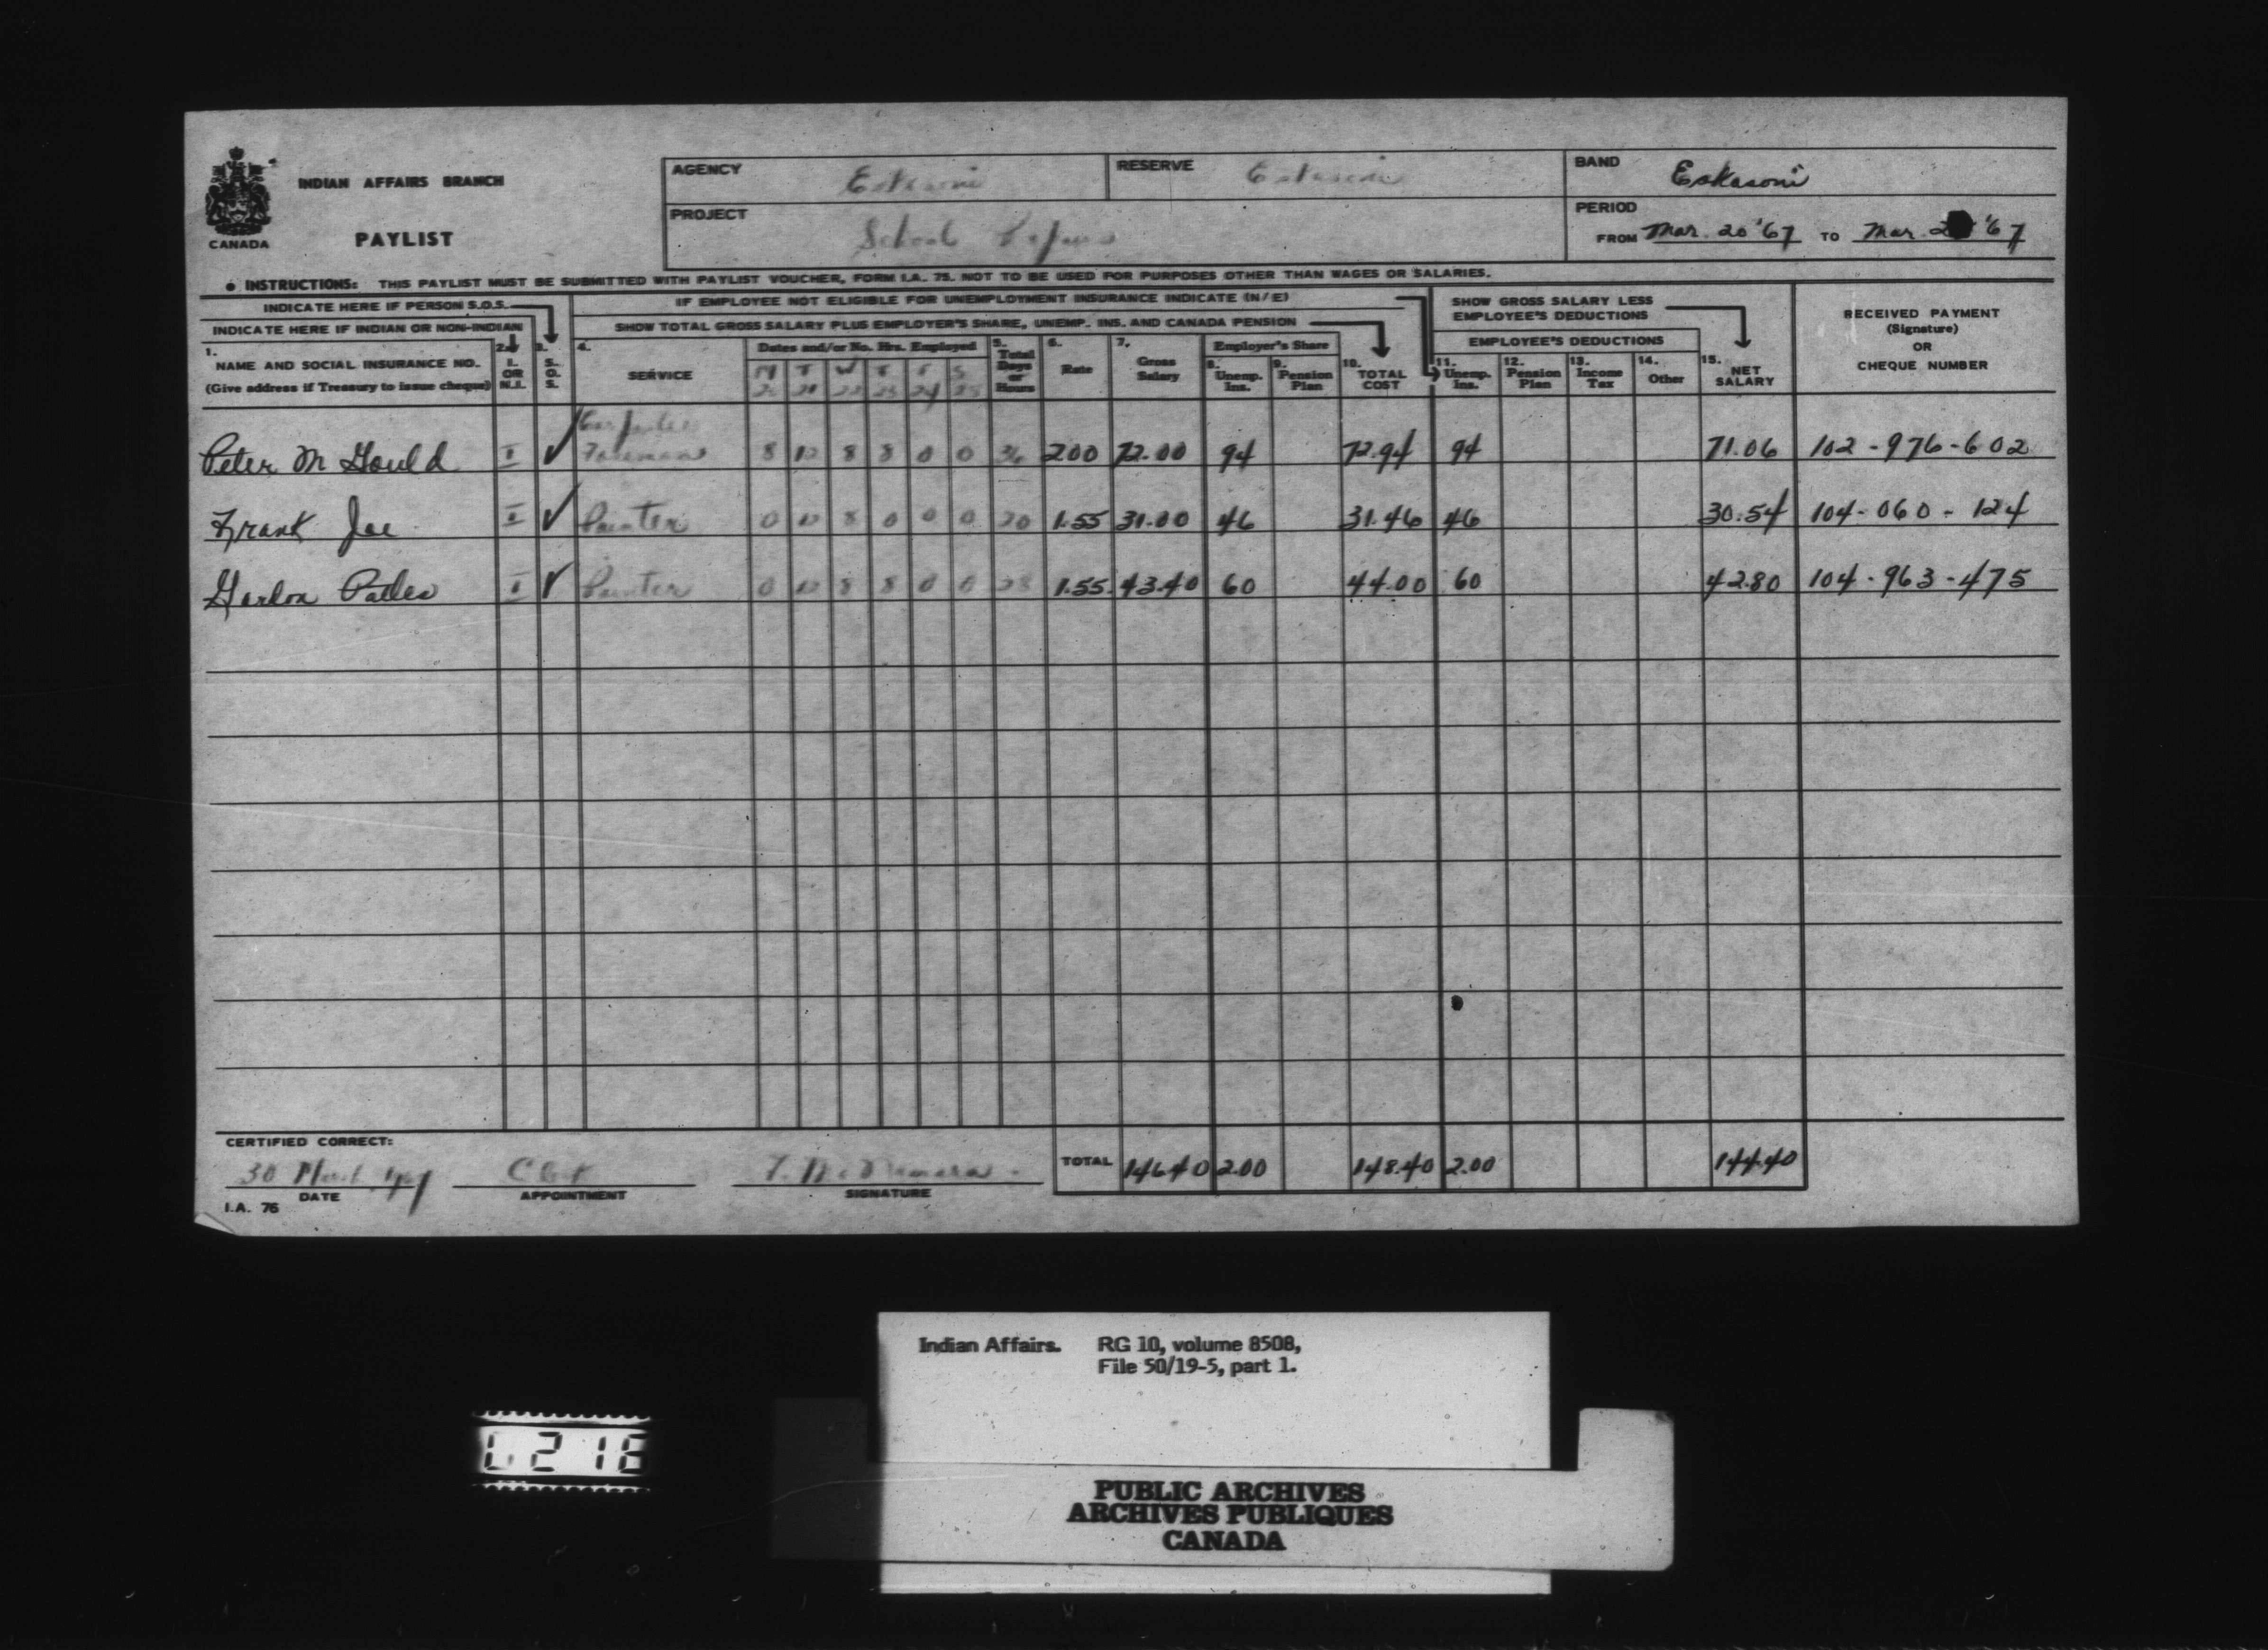 INDIAN AFFAIRS BRANCH
CANADA
PAYLIST
AGENCY Eskasoni
RESERVE Eskasoni
BAND Eskasoni
PROJECT School Repairs
PERIOD
FROM Mar. 20 '67 TO Mar. 2 '67
• INSTRUCTIONS: THIS PAYLIST MUST BE SUBMITTED WITH PAYLIST VOUCHER, FORM I.A. 75. NOT TO BE USED FOR PURPOSES OTHER THAN WAGES OR SALARIES.
INDICATE HERE IF PERSON S.O.S.
INDICATE HERE IF INDIAN OR NON-INDIAN
IF EMPLOYEE NOT ELIGIBLE FOR UNEMPLOYMENT INSURANCE INDICATE (N/E)
SHOW TOTAL GROSS SALARY PLUS EMPLOYER'S SHARE, UNEMP. INS. AND CANADA PENSION
SHOW GROSS SALARY LESS
EMPLOYEE'S DEDUCTIONS
RECEIVED PAYMENT
(Signature)
OR
CHEQUE NUMBER
1. NAME AND SOCIAL INSURANCE NO.
(Give address if Treasury to issue cheque)
2. I. OR N.I.
3. S. O. S.
4. SERVICE
Dates and/or No. Hrs. Employed
M T W T F S
20 21 22 23 24 25
5. Total Days or Hours
6. Rate
7. Gross Salary
Employer's Share
8. Unemp. Ins.
9. Pension Plan
10. TOTAL COST
EMPLOYEE'S DEDUCTIONS
11. Unemp. Ins.
12. Pension Plan
13. Income Tax
14. Other
15. NET SALARY
Peter M Gould I ✓ Carpenter Foreman 8 12 8 8 0 0 36 2.00 72.00 94 72.94 94 71.06 102-976-602
Frank Joe I ✓ Painter 0 12 8 0 0 0 20 1.55 31.00 46 31.46 46 30.54 104-060-124
I ✓ Painter 0 12 8 8 0 0 28 1.55 43.40 60 44.00 60 42.80 104-963-475
CERTIFIED CORRECT:
30 March
DATE
Clerk
APPOINTMENT
McNamara
SIGNATURE
TOTAL 146.40 2.00 148.40 2.00 144.40
I.A. 76
Indian Affairs. RG 10, volume 8508,
File 50/19-5, part 1.
PUBLIC ARCHIVES
ARCHIVES PUBLIQUES
CANADA